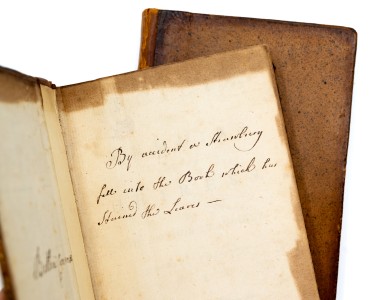 By accident a Strawberry
fell into the Book which has
Stained the Leaves —